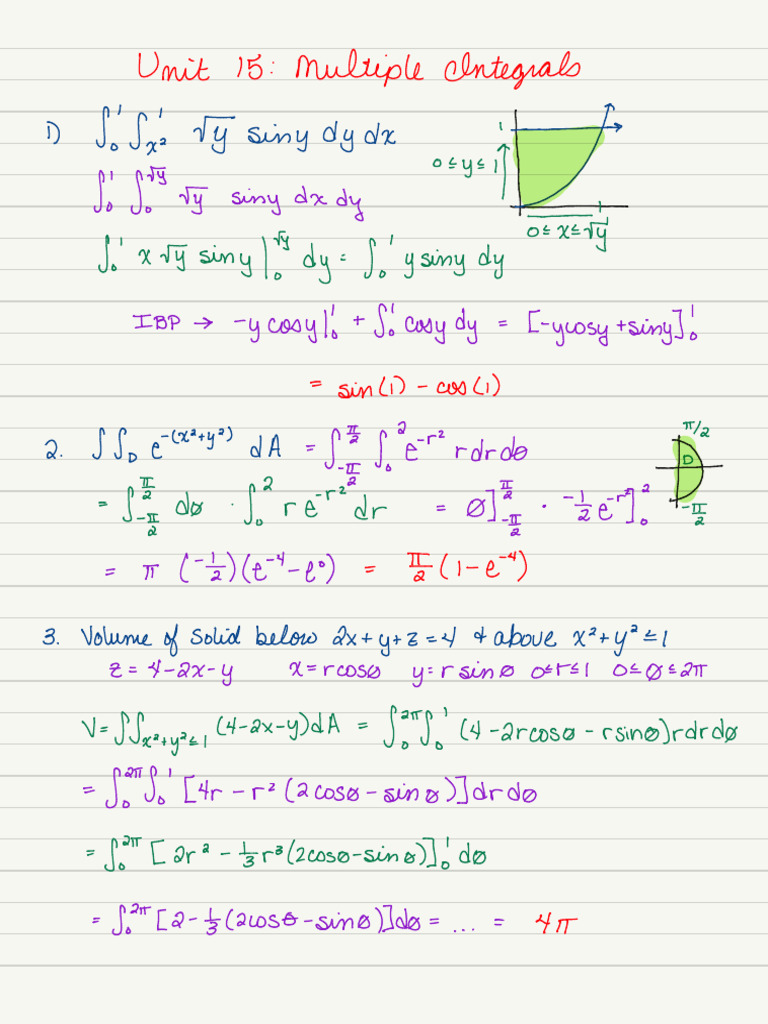 Unit 15: Multiple Integrals
1) ∫₀¹ ∫ₓ²¹ √y siny dy dx
1
0 ≤ y ≤ 1
1
0 ≤ x ≤ √y
∫₀¹ ∫₀^√y √y siny dx dy
∫₀¹ x √y siny |₀^√y dy = ∫₀¹ y siny dy
IBP → -y cosy|₀¹ + ∫₀¹ cosy dy = [-ycosy + siny]₀¹
= sin(1) - cos(1)
2. ∫∫_D e^(-(x²+y²)) dA = ∫_(-π/2)^(π/2) ∫₀² e^(-r²) r dr dθ
π/2
D
-π/2
= ∫_(-π/2)^(π/2) dθ · ∫₀² r e^(-r²) dr = θ]_(-π/2)^(π/2) · -1/2 e^(-r²)]₀²
= π (-1/2)(e⁻⁴ - e⁰) = π/2 (1 - e⁻⁴)
3. Volume of solid below 2x + y + z = 4 & above x² + y² ≤ 1
z = 4 - 2x - y x = rcosθ y = r sinθ 0 ≤ r ≤ 1 0 ≤ θ ≤ 2π
V = ∫∫_(x²+y²≤1) (4-2x-y)dA = ∫₀^(2π) ∫₀¹ (4 - 2rcosθ - rsinθ)rdrdθ
= ∫₀^(2π) ∫₀¹ [4r - r² (2cosθ - sinθ)]drdθ
= ∫₀^(2π) [2r² - 1/3 r³(2cosθ - sinθ)]₀¹ dθ
= ∫₀^(2π) [2 - 1/3 (2cosθ - sinθ)]dθ = ... = 4π